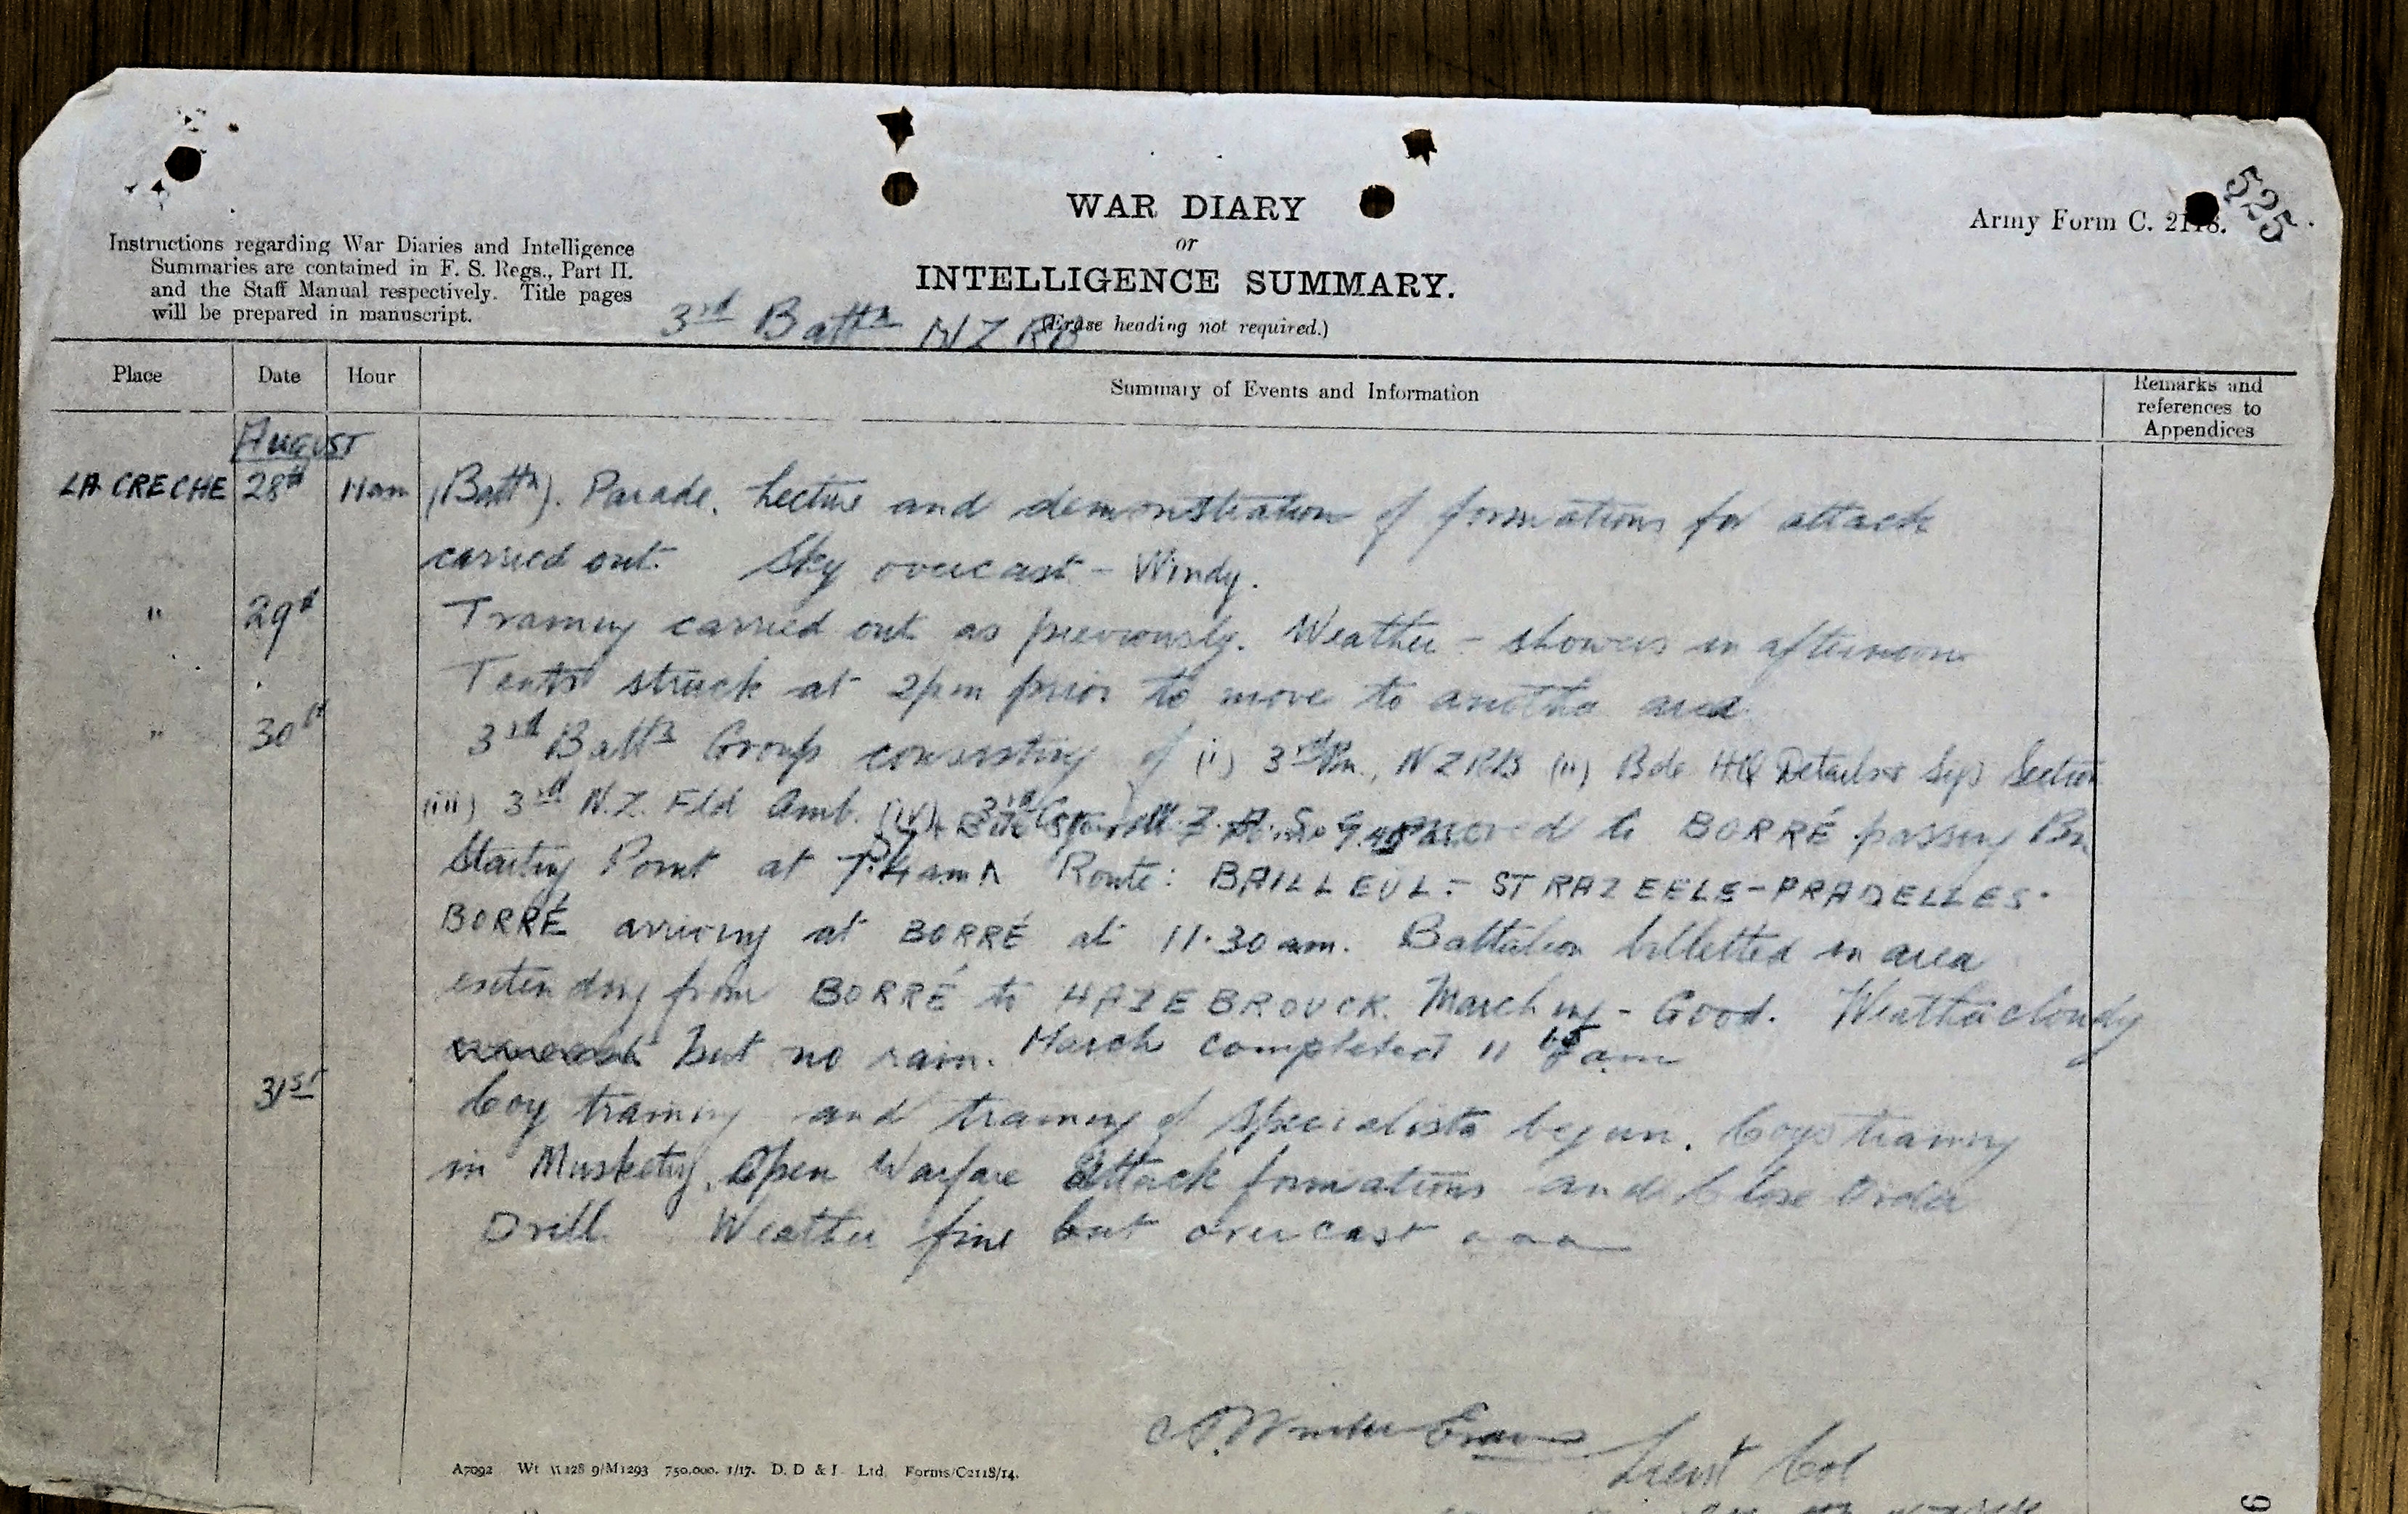 525
WAR DIARY
Army Form C. 2118.
or
Instructions regarding War Diaries and Intelligence
Summaries are contained in F. S. Regs., Part II.
and the Staff Manual respectively. Title pages
will be prepared in manuscript.
INTELLIGENCE SUMMARY.
3rd Battn NZRB
(Erase heading not required.)
Place Date Hour Summary of Events and Information Remarks and references to Appendices
August
LA CRECHE 28th 11am (Battn). Parade. Lecture and demonstration of formations for attack
carried out. Sky overcast - Windy.
" 29th Training carried out as previously. Weather - showers in afternoon
Tents struck at 2pm prior to move to another area
" 30th 3rd Battn Group consisting of (i) 3rd Bn., NZRB (ii) Bde HQ Details & Sig Section
(iii) 3rd N.Z. Fld Amb. (iv) moved to BORRÉ passing Bn
Starting Point at Route: BAILLEUL - STRAZEELE - PRADELLES -
BORRÉ arriving at BORRÉ at 11.30 am. Battalion billetted in area
extending from BORRÉ to HAZEBROUCK. Marching - Good. Weather cloudy
but no rain. March completed 11 am
31st Coy training and training of specialists begun. Coys training
in Musketry, Open Warfare Attack formations and Close Order
Drill. Weather fine but overcast
Winter Evans
Lieut Col
A7092 Wt W128 9/M1293 750,000. 1/17. D. D & L Ltd. Forms/C2118/14.